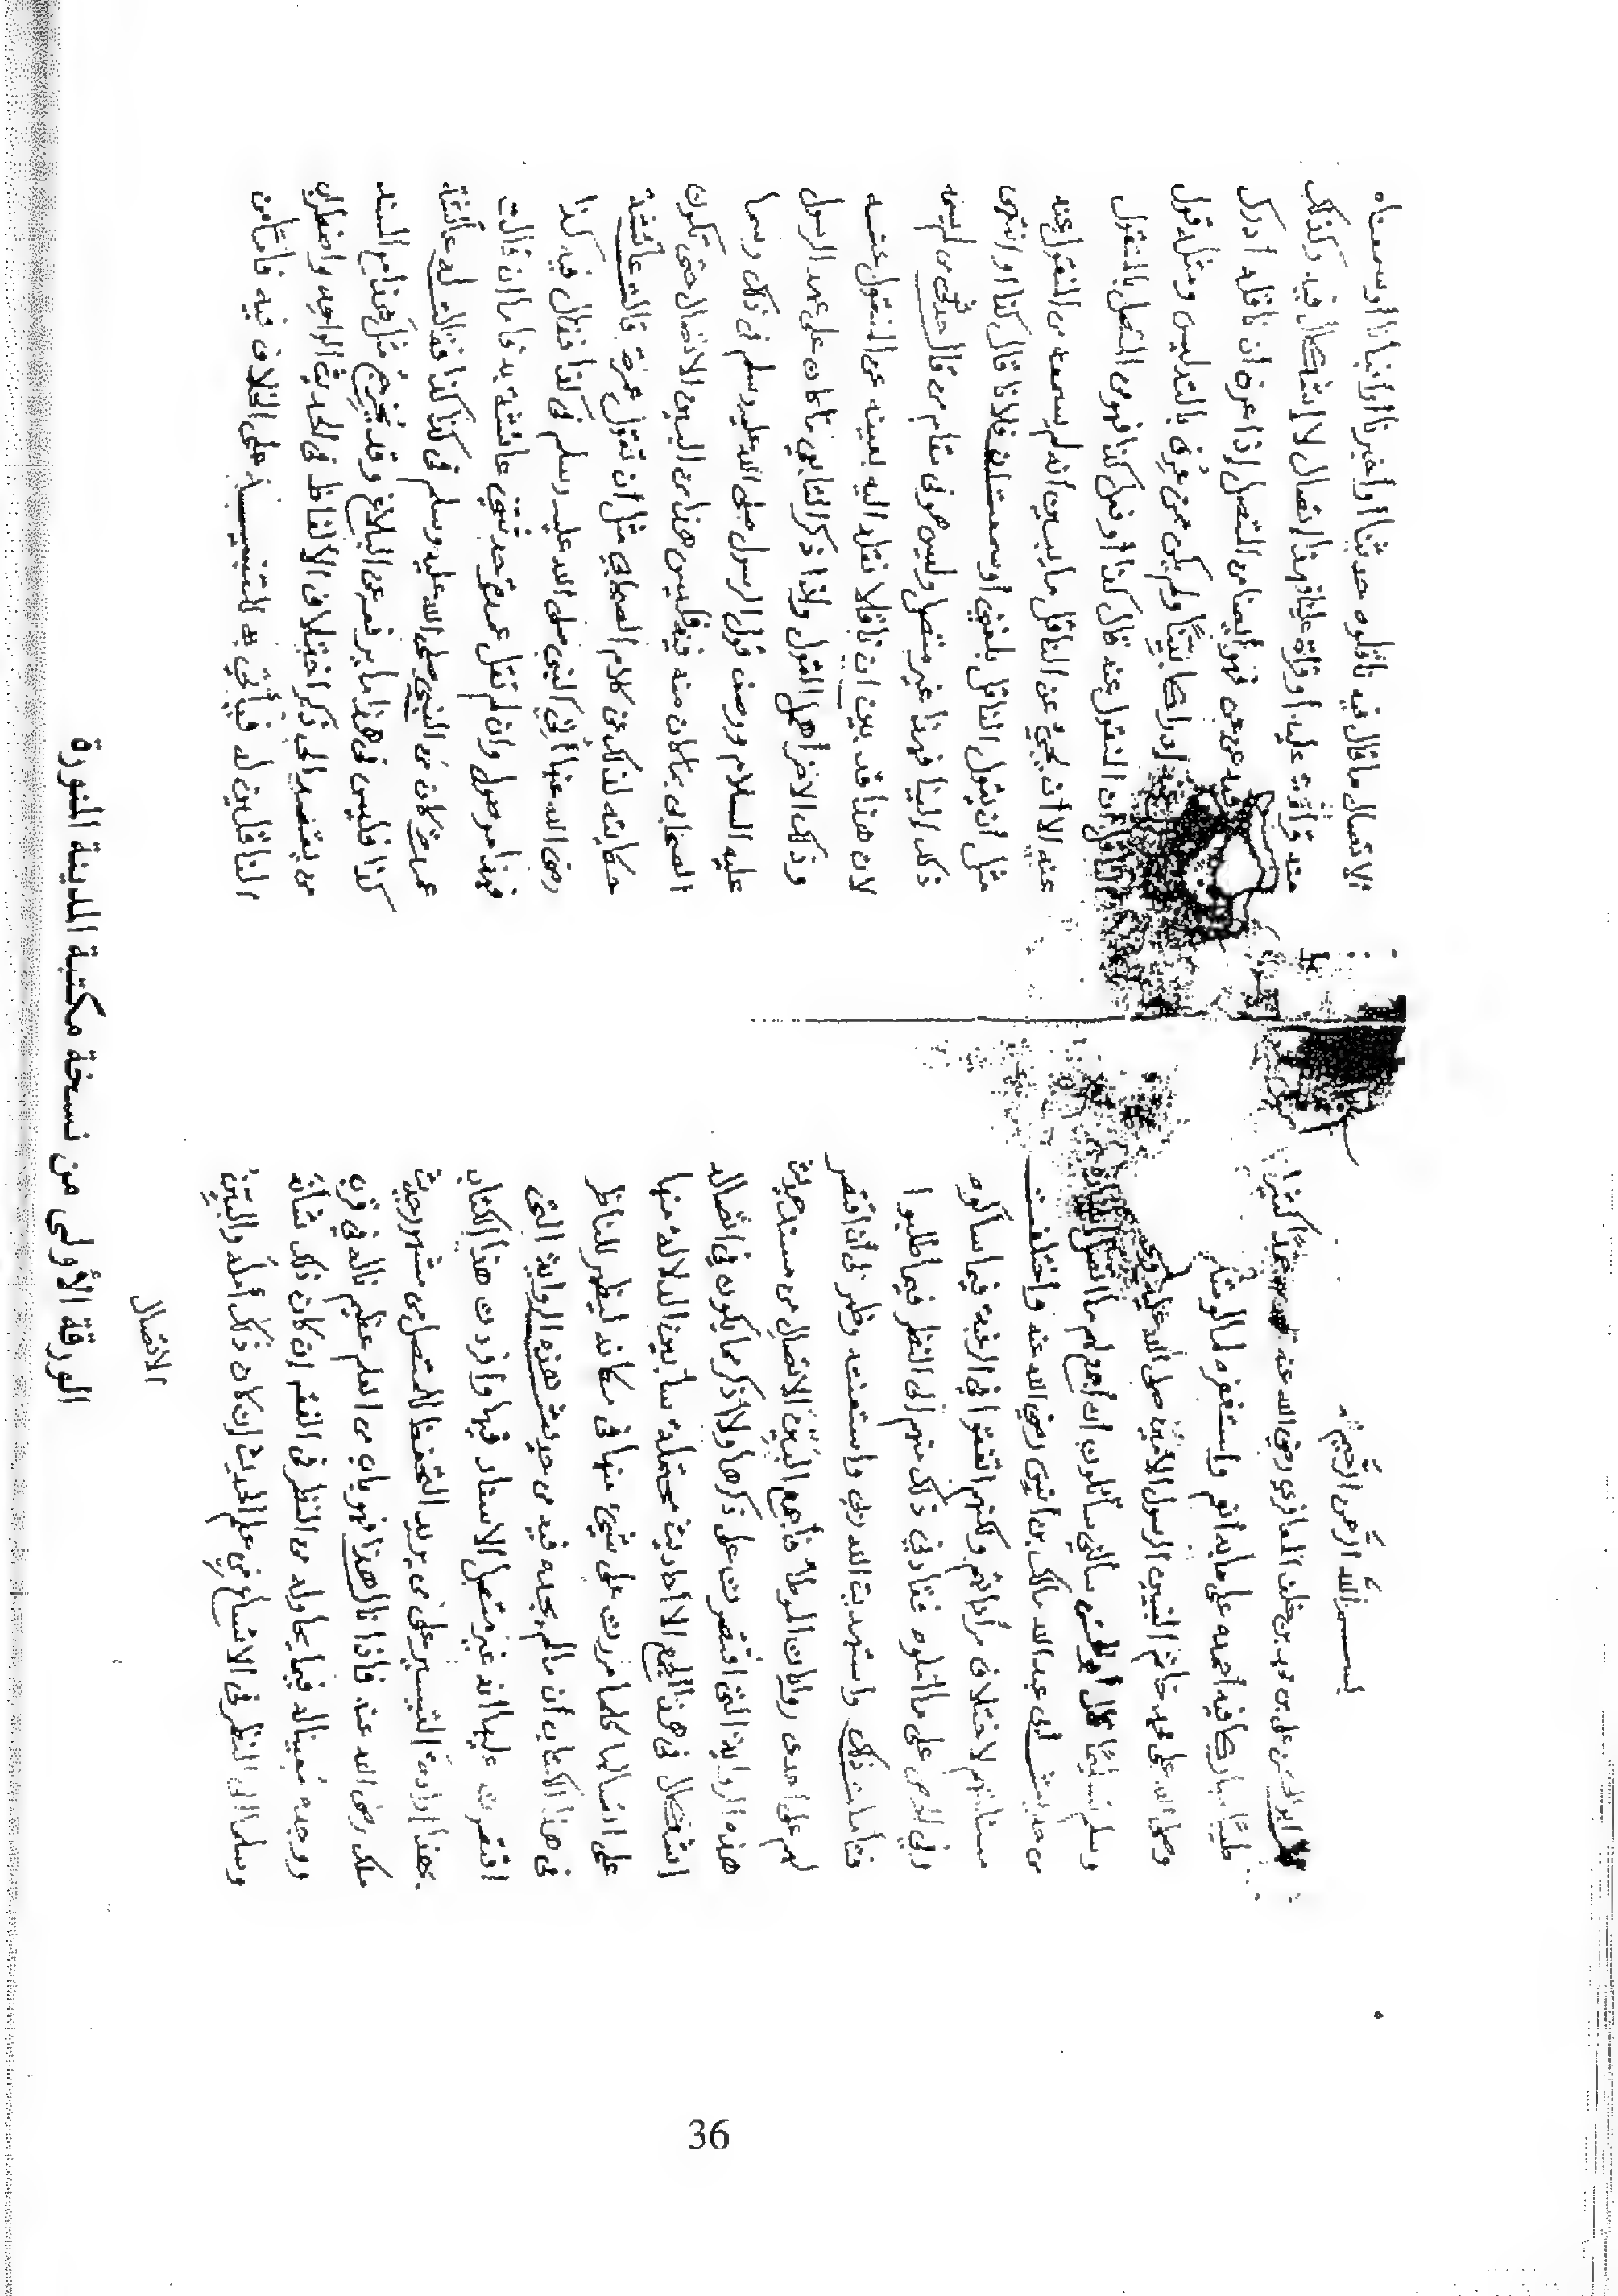 بسم الله الرحمن الرحيم
قال ابو الحسن علي بن محمد بن خلف المعافري رضي الله عنه حمدا كثيرا
طيبا مباركا فيه احمده على ما به انعم واستغفره لما لو شكر
وصلى الله على محمد خاتم النبيين الرسول الامين صلى الله عليه وعلى
وسلم تسليما سألني سائلون ان اجمع لهم ما اتصل اسناده
من حديث ابي عبد الله مالك بن انس رضي الله عنه واختلفت
مسئلتهم لاختلاف مراداتهم ولكنهم اتفقوا في الرغبة فيما سألوه
وفي الحرص على ما املوه فقادني ذلك منهم الى النظر فيما طلبوا
فتأملت ذلك واستهديت الله ربي واستعنته وظهر لي ان اقتصر
لهم على احدى روايات الموطأ فأجمع البين الاتصال من مسند حديث
هذه الرواية التي اقتصرت على ذكرها ولا اذكر مما يكون في اتصاله
اشكال في هذا الجمع الا احاديث محتملة سأبين الدلالة منها
على اتصالها كلما مررت على شيء منها في مكانه ليظهر للناظر
في هذا الكتاب ان ما لم يجده فيه من حديث هذه الرواية التي
اقتصرت عليها انه غير متصل الاسناد فيها وافردت هذا الكتاب
بهذا ارادة التيسير على من يريد التحفظ للمتصل من مشهور حديث
ملك رضي الله عنه فاذا ناله هذا فهو باب من العلم عظيم ناله في قرب
ووجده مبينا له فيما يحاوله من النظر في الفقه ان كان ذلك شأنه
وسلما الى النظر في الاتساع في علم الحديث ان كان ذلك أمله والبين
الاتصال
الاتصال ما قال فيه ناقلوه حدثنا او اخبرنا او انبانا او سمعناه
منه قراءة عليه او قراه علينا فهذا اتصال لا اشكال فيه وكذلك
فيه عن عن فهو ايضا من المتصل اذا عرف ان ناقله ادرك
عنه ادراكا بينا ولم يكن ممن عرف بالتدليس ومثله قول
الناقل ان المنقول عنه قال كذا او فعل كذا فهو من المتصل بالمنقول
عنه الا ان يجيء عن الناقل ما يبين انه لم يسمعه من المنقول عنه
مثل ان يقول الناقل بلغني او سمعت ان فلانا قال كذا او انتهى
ذلك الينا فهذا غير متصل وليس هو في مقام من قال حدثني من لم يسمه
لان هذا قد بين ان ناقلا نقله اليه بعينه عن المنقول عنه
وذلك الاخر اهمل القول واذا ذكر التابعي ما كان على عهد الرسول
عليه السلام ووصف قول الرسول صلى الله عليه وسلم في ذلك وسما
الصحابي بما كان منه فيه فليس هذا من البين الاتصال حتى تكون
حكايته لذلك عن كلام الصحابي مثل ان يقول عروة قالت عائشة
رضي الله عنها أتى النبي صلى الله عليه وسلم في كذا فقال فيه كذا
فهذا موصول وان لم تقل عمرة حدثتني عائشة به فاما ان قالت
عمرة كان من النبي صلى الله عليه وسلم في كذا كذا فقالت له عائشة
كذا فليس في هذا ما يرفعه عن البلاغ وقد يخرج مثل هذا في المسند
من يقصد الى ذكر اختلاف الالفاظ في الحديث الواحد واضطراب
الناقلين له فيأتي به للتنبيه على الخلاف فيه فأما من
الورقة الأولى من نسخة مكتبة المدينة المنورة
36